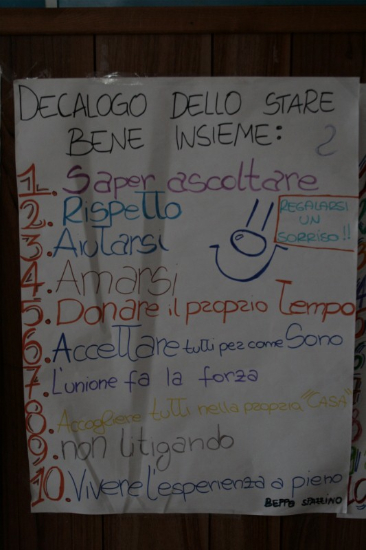 DECALOGO DELLO STARE
BENE INSIEME:
1. Saper ascoltare
2. Rispetto
REGALARSI
UN
SORRISO!!
3. Aiutarsi
4. Amarsi
5. Donare il proprio Tempo
6. Accettare tutti per come Sono
7. L'unione fa la forza
8. Accogliere tutti nella propria "CASA"
9. non litigando
10. Vivere l'esperienza a pieno
BEPPO